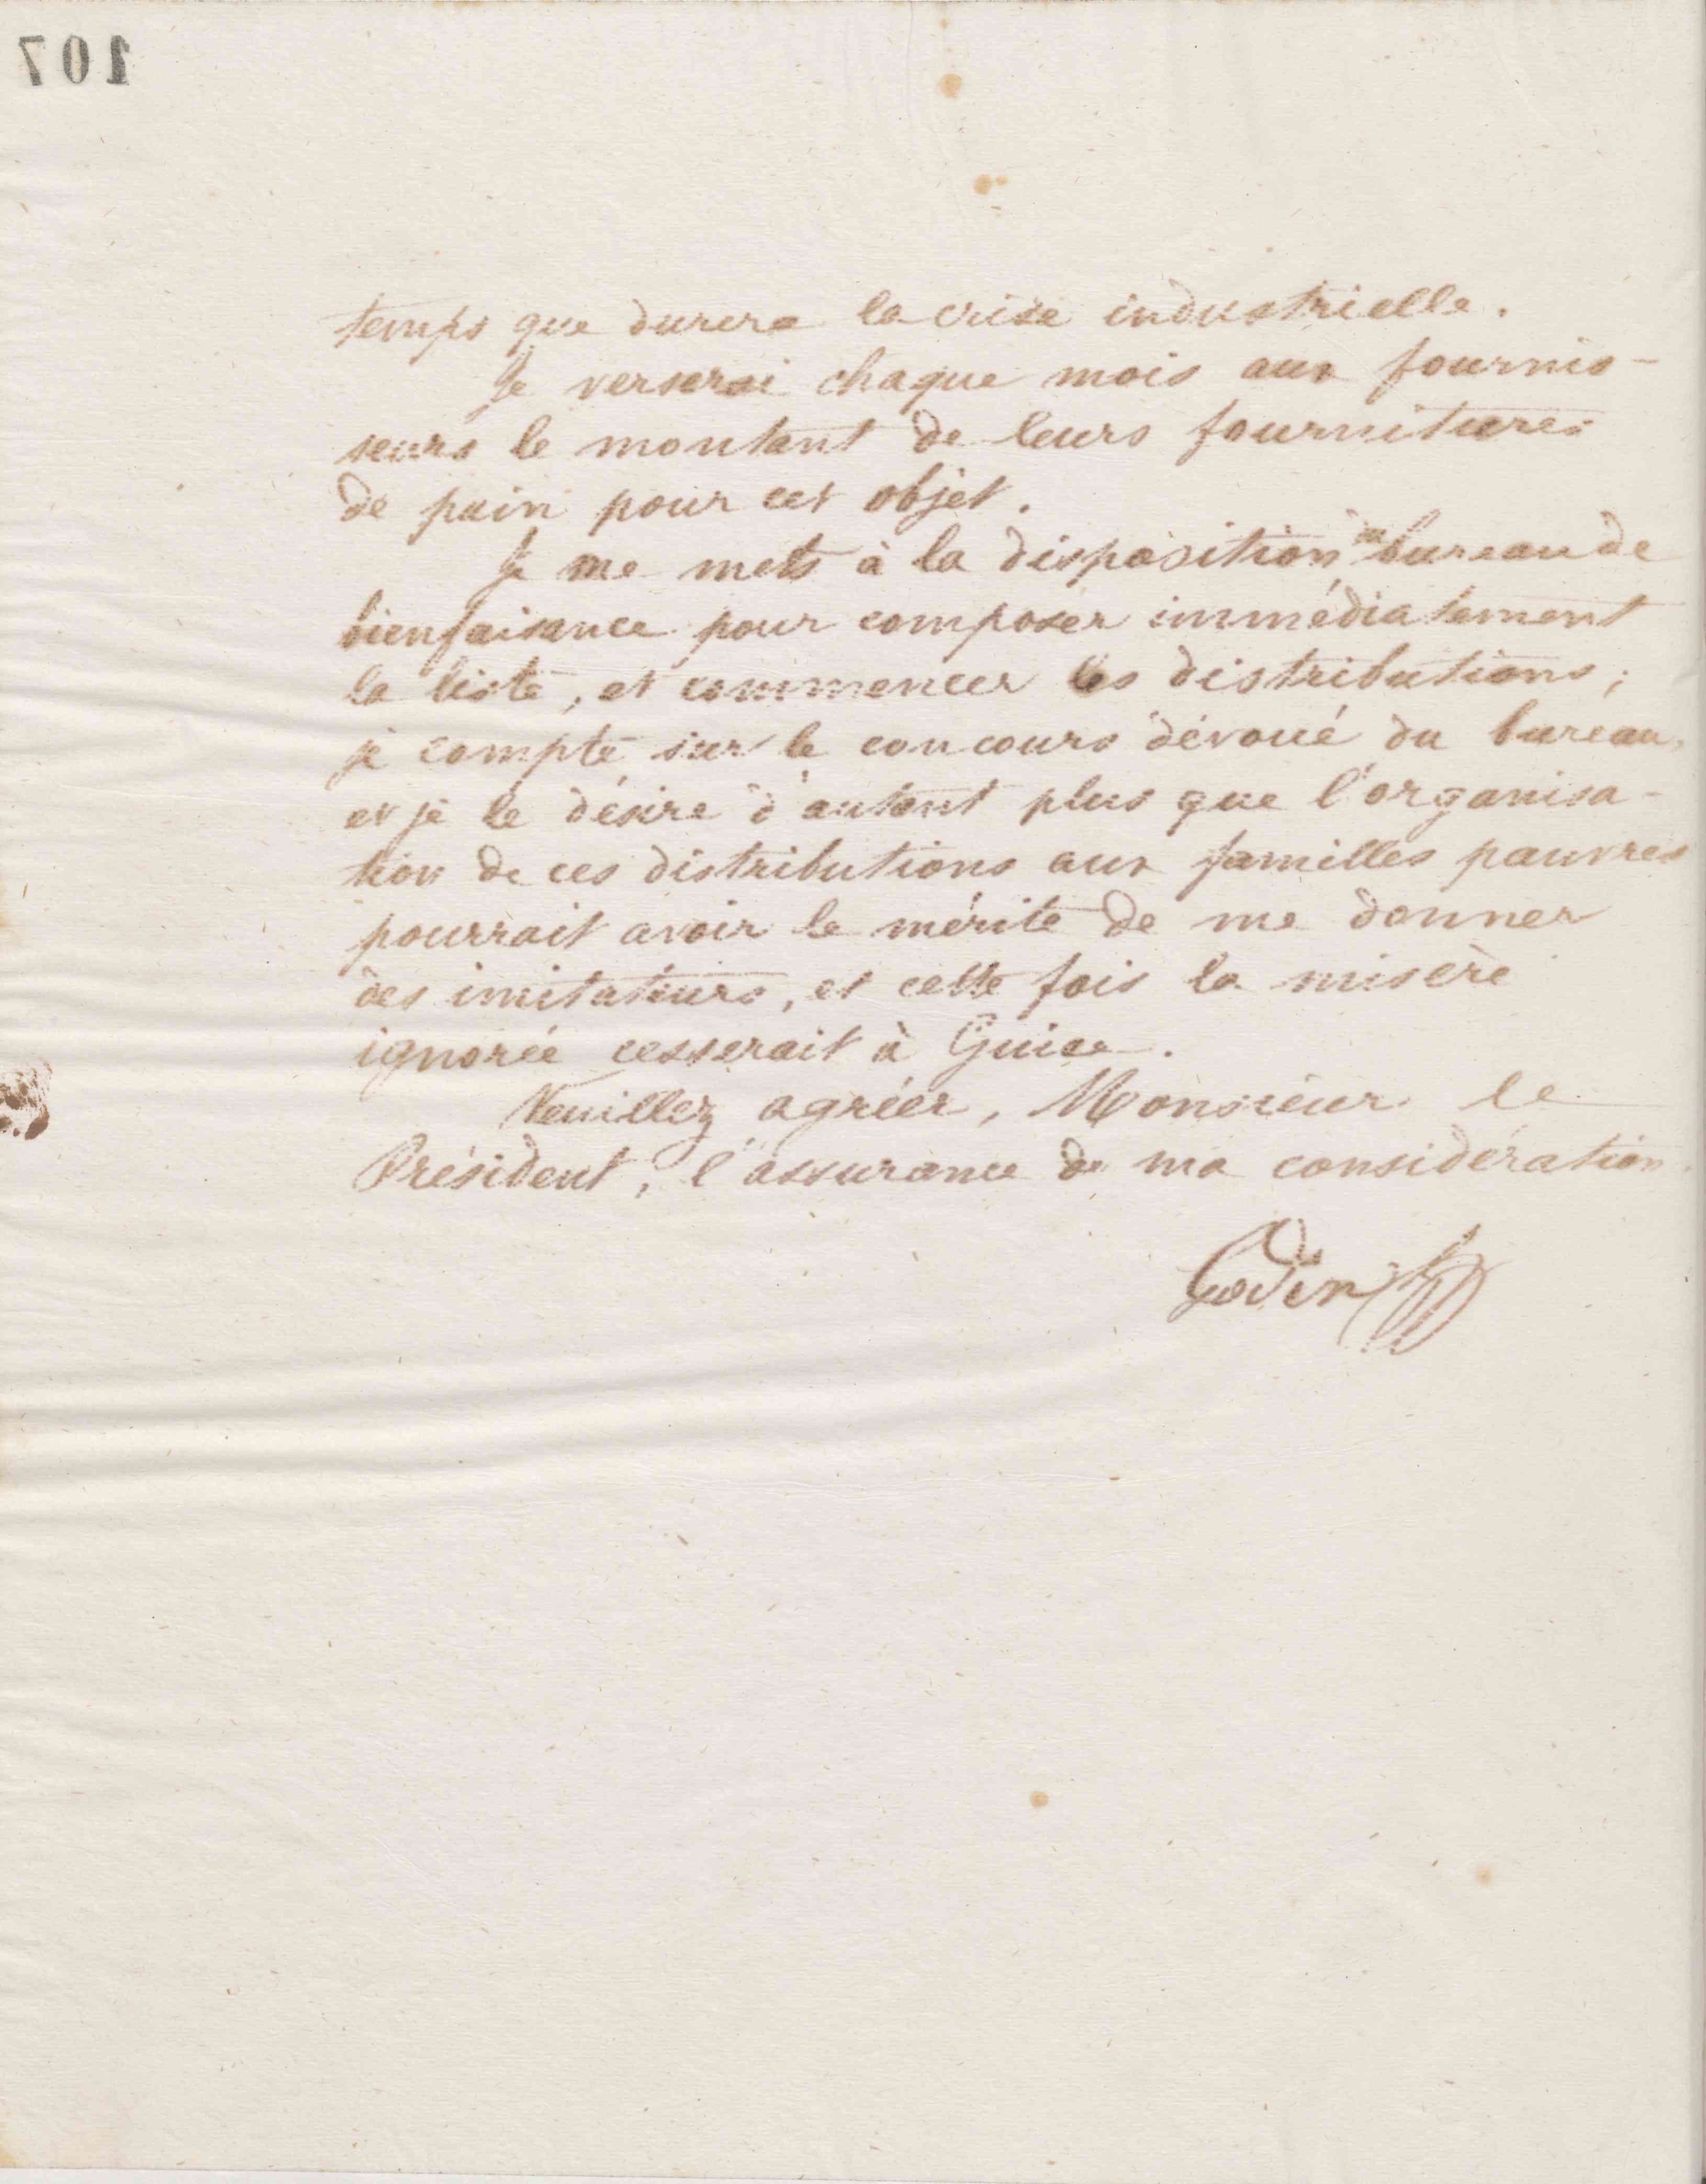 107
temps que durera la crise industrielle.
Je verserai chaque mois aux fournis-
seurs le montant de leurs fournitures
de pain pour cet objet.
Je me mets à la disposition du bureau de
bienfaisance pour composer immédiatement
la liste, et commencer les distributions ;
je compte sur le concours dévoué du bureau,
et je le désire d'autant plus que l'organisa-
tion de ces distributions aux familles pauvres
pourrait avoir le mérite de me donner
des imitateurs, et cette fois la misère
ignorée cesserait à Guise.
Veuillez agréer, Monsieur le
Président, l'assurance de ma considération.
Godin